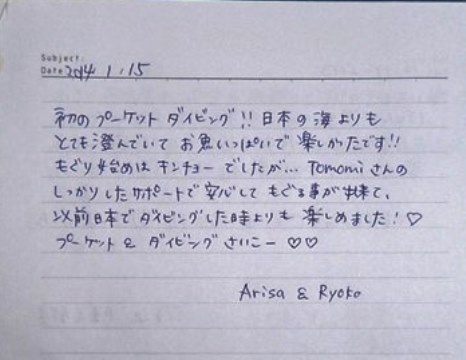 Subject:
Date 2014 1.15
初のプーケットダイビング!! 日本の海よりも
とても澄んでいてお魚いっぱいで楽しかったです!!
もぐり始めはキンチョーでしたが… Tomomiさんの
しっかりしたサポートで安心してもぐる事が出来て、
以前日本でダイビングした時よりも楽しめました!♡
プーケット&ダイビングさいこー♡♡
Arisa & Ryoko